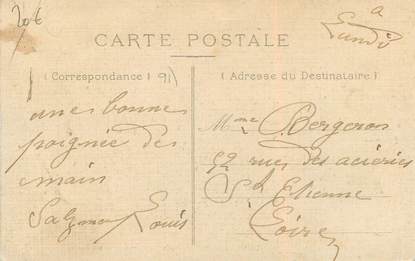 20€
a
Lundi
CARTE POSTALE
(Correspondance)
91
(Adresse du Destinataire)
une bonne
poignée de
main
Louis
Mme Bergeron
52 rue des aciéries
St Etienne
Loire